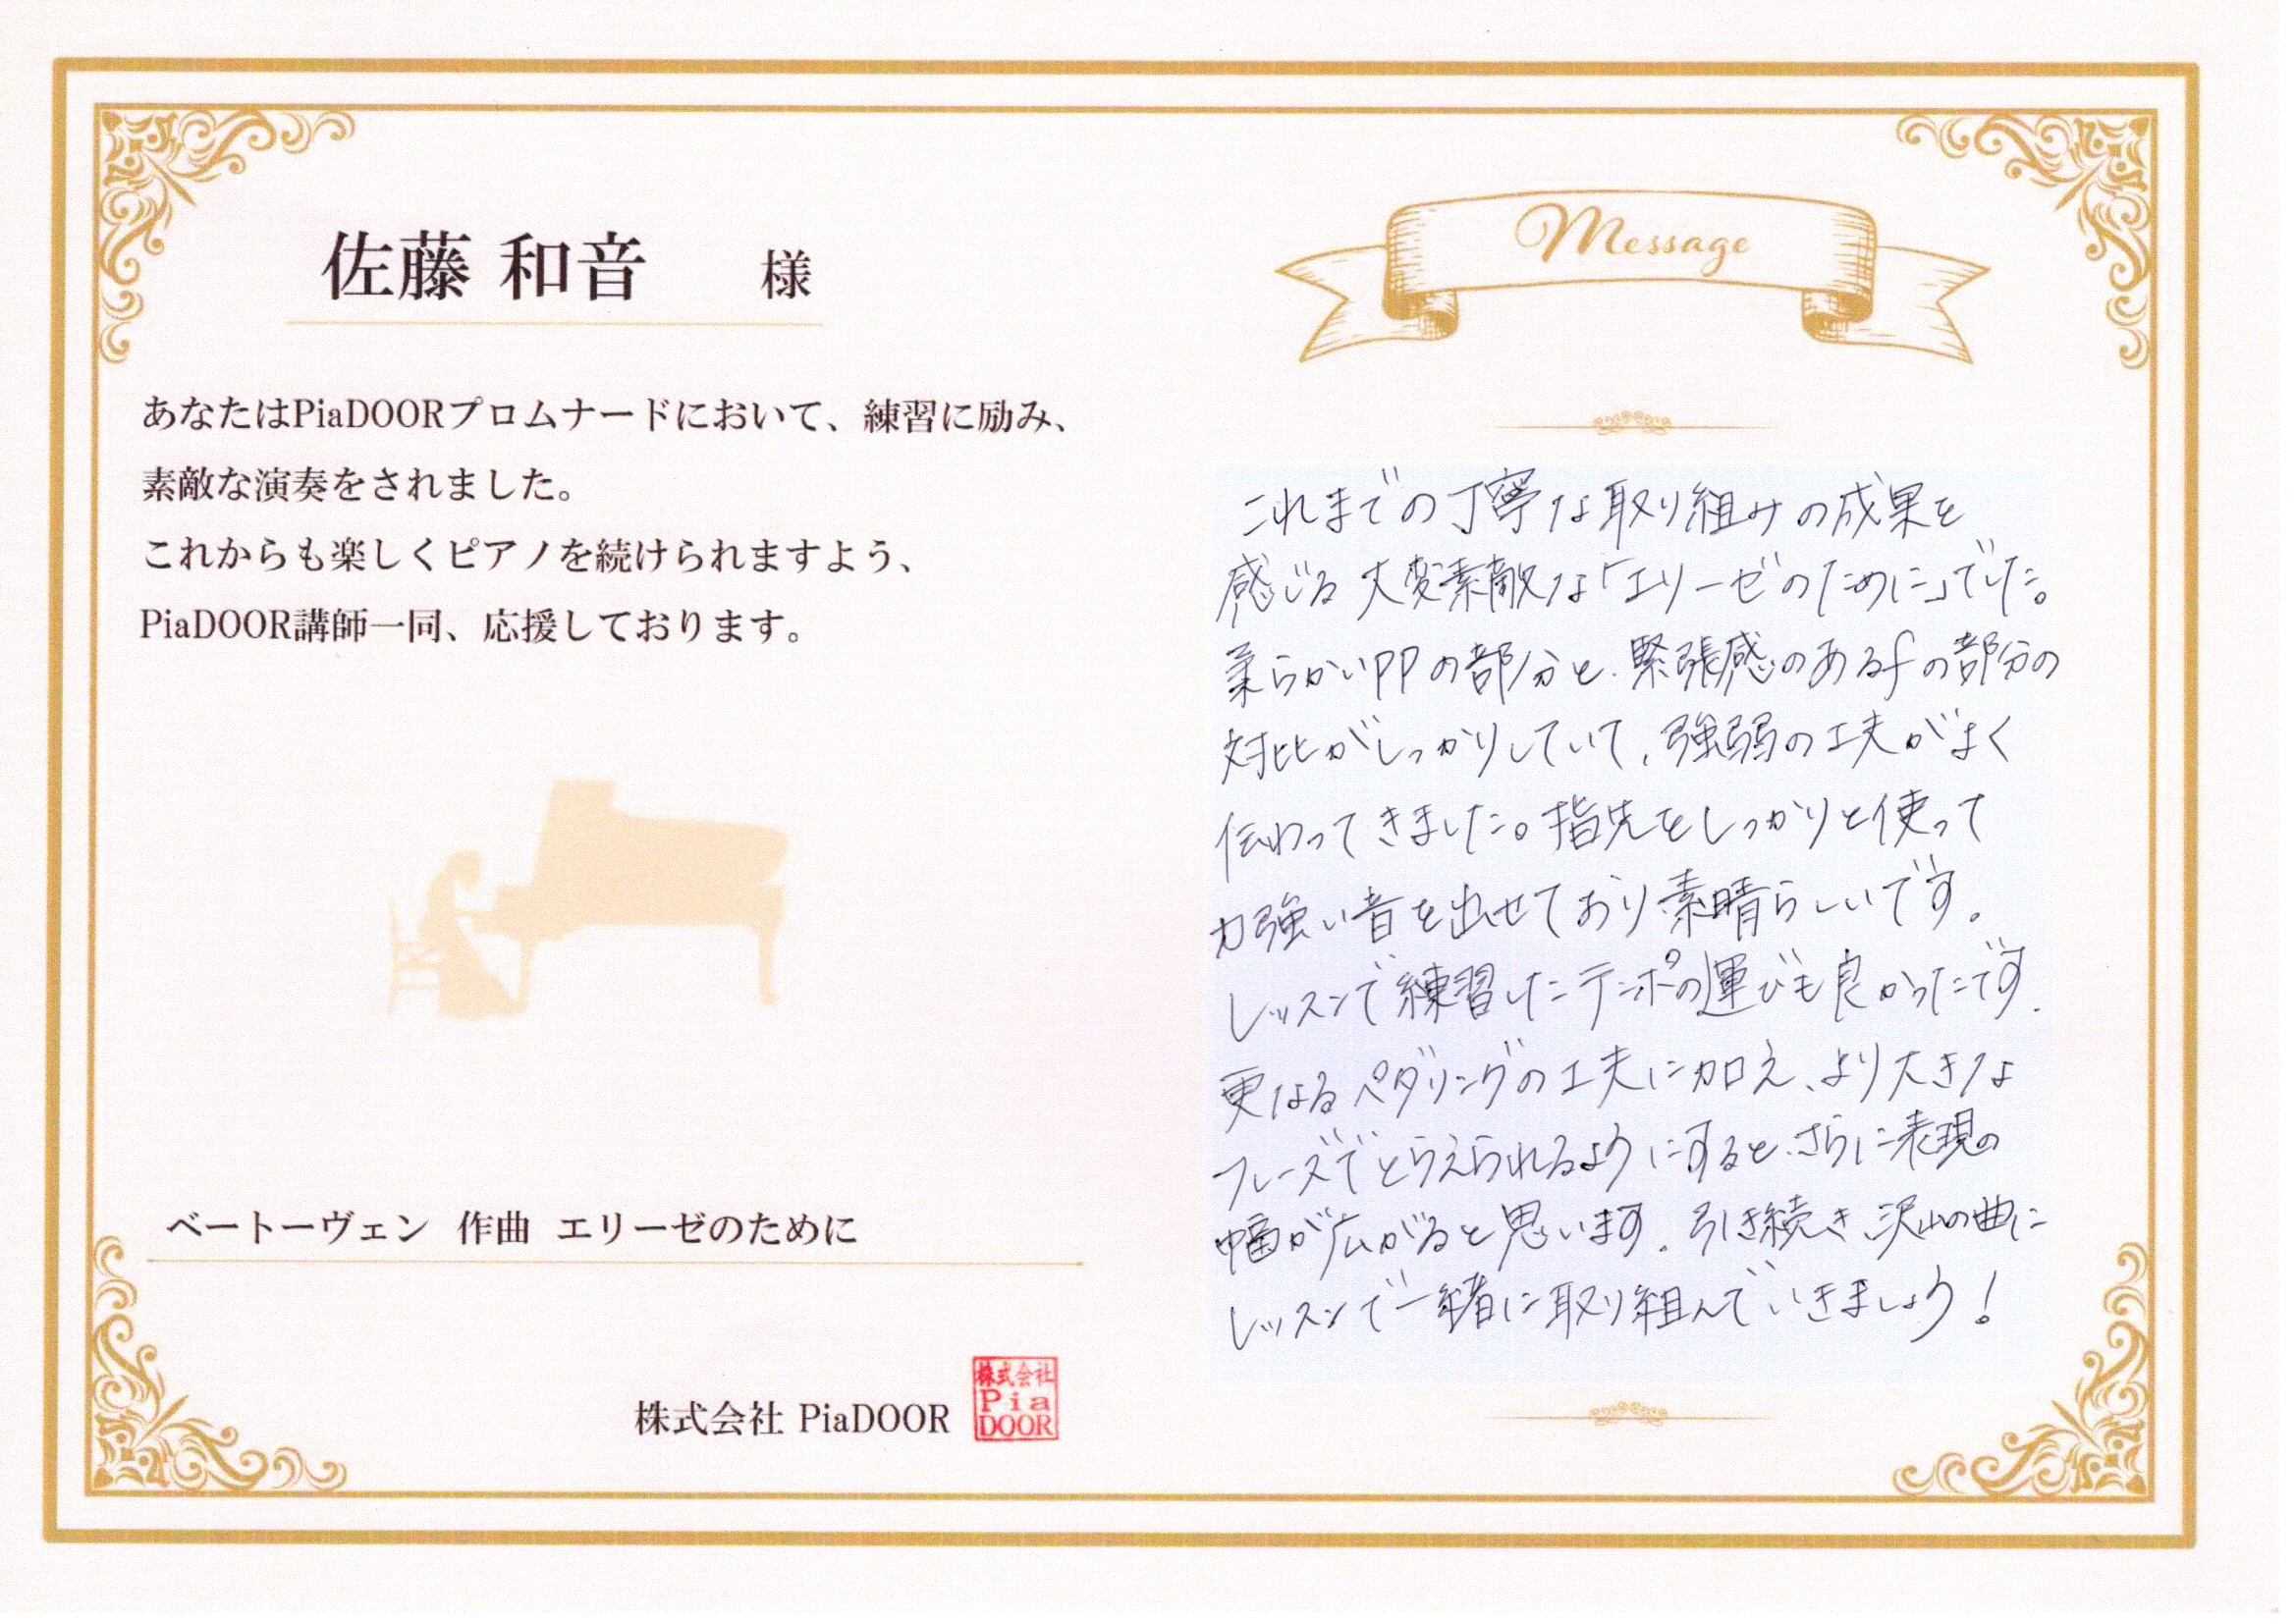 佐藤 和音 様
あなたはPiaDOORプロムナードにおいて、練習に励み、
素敵な演奏をされました。
これからも楽しくピアノを続けられますよう、
PiaDOOR講師一同、応援しております。
ベートーヴェン 作曲 エリーゼのために
株式会社 PiaDOOR
株式会社
Pia
DOOR
Message
これまでの丁寧な取り組みの成果を
感じる大変素敵な「エリーゼのために」でした。
柔らかいppの部分と、緊張感のあるfの部分の
対比がしっかりしていて、強弱の工夫がよく
伝わってきました。指先をしっかりと使って
力強い音を出せており素晴らしいです。
レッスンで練習したテンポの運びも良かったです。
更なるペダリングの工夫に加え、より大きな
フレーズでとらえられるようにすると、さらに表現の
幅が広がると思います。引き続き、沢山の曲に
レッスンで一緒に取り組んでいきましょう!